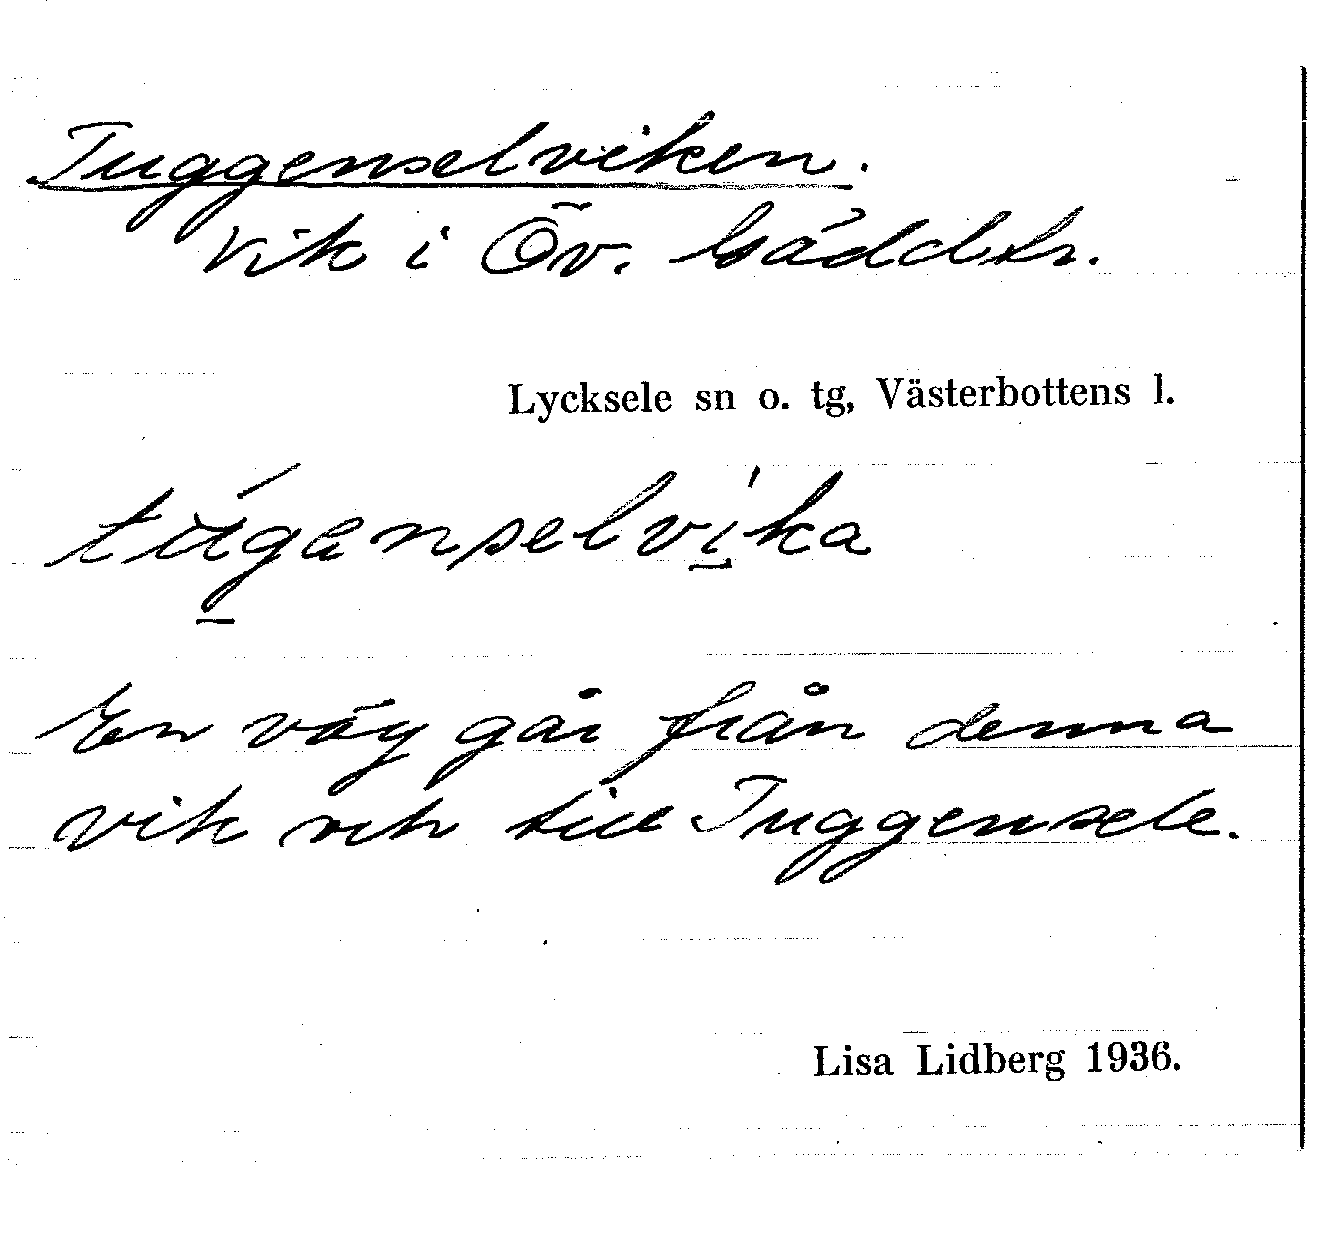 Tuggenselviken.
Vik i Öv. Gäddtr.
Lycksele sn o. tg, Västerbottens l.
túg̲anselvi̲'ka
En väg går från denna
vik och till Tuggensele.
Lisa Lidberg 1936.